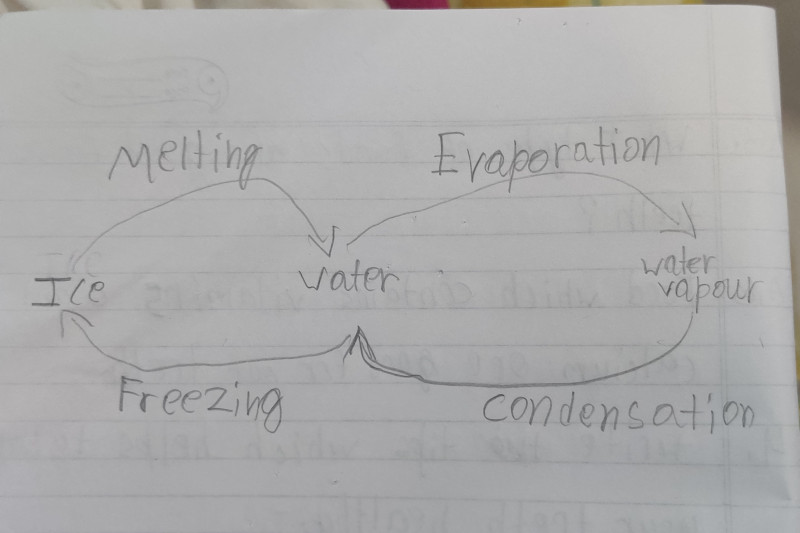 Melting Evaporation
Ice water water
vapour
Freezing condensation